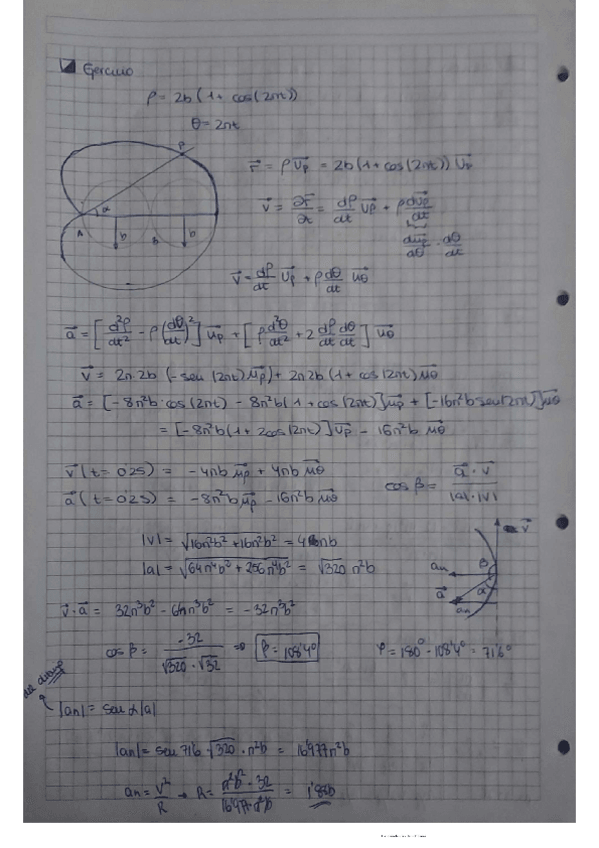 Ejercicio
ρ = 2b(1 + cos(2πt))
θ = 2πt
P
A α b B b
r⃗ = ρ u⃗ρ = 2b(1 + cos(2πt)) u⃗ρ
v⃗ = ∂r⃗/∂t = dρ/dt u⃗ρ + ρ du⃗ρ/dt
du⃗ρ/dθ · dθ/dt
v⃗ = dρ/dt u⃗ρ + ρ dθ/dt u⃗θ
a⃗ = [d²ρ/dt² - ρ(dθ/dt)²] u⃗ρ + [ρ d²θ/dt² + 2 dρ/dt dθ/dt] u⃗θ
v⃗ = 2π·2b (-sen(2πt) u⃗ρ) + 2π2b (1 + cos(2πt) u⃗θ
a⃗ = [-8π²b·cos(2πt) - 8π²b(1 + cos(2πt)] u⃗ρ + [-16π²b sen(2πt)] u⃗θ
= [-8π²b(1 + 2cos(2πt)] u⃗ρ - 16π²b u⃗θ
v⃗(t = 0'25) = -4πb u⃗ρ + 4πb u⃗θ
a⃗(t = 0'25) = -8π²b u⃗ρ - 16π²b u⃗θ
cos β = a⃗ · v⃗ / |a|·|v|
|v| = √(16π²b² + 16π²b²) = πb
|a| = √(64π⁴b² + 256π⁴b²) = √320 π²b
v⃗
an β
a⃗ α
an
v⃗·a⃗ = 32π³b² - 64π³b² = -32π³b²
cos β = -32 / √320 · √32 ⇒ β = 108'4°
φ = 180° - 108'4° = 71'6°
del dibujo
|an| = sen α|a|
|an| = sen 71'6 · √320 · π²b = 16'977π²b
an = v²/R → R = π²b² · 32 / 16'97·π²b = 1'88b